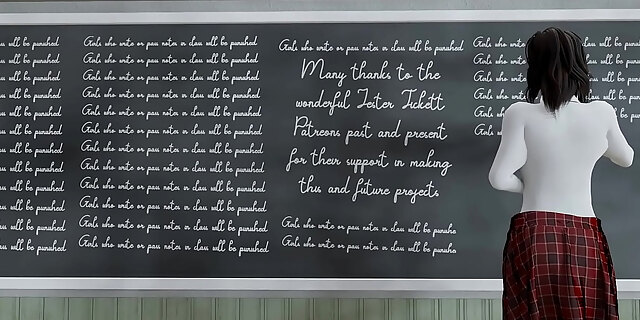 will be punished
will be punished
will be punished
will be punished
will be punished
will be punished
will be punished
will be punished
will be punished
will be punished
will be punished
will be punished
Girls who write or pass notes in class will be punished
Girls who write or pass notes in class will be punished
Girls who write or pass notes in class will be punished
Girls who write or pass notes in class will be punished
Girls who write or pass notes in class will be punished
Girls who write or pass notes in class will be punished
Girls who write or pass notes in class will be punished
Girls who write or pass notes in class will be punished
Girls who write or pass notes in class will be punished
Girls who write or pass notes in class will be punished
Girls who write or pass notes in class will be punished
Girls who write or pass notes in class will be punished
Girls who write or pass notes in class will be punished
Many thanks to the
wonderful Tester Tickett
Patreons past and present
for their support in making
this and future projects
Girls who write or pass notes in class will be punishe
Girls who write or pass notes in class will be punishe
Girls who
Girls who
Girls who
Girls who
Girls who
Girls